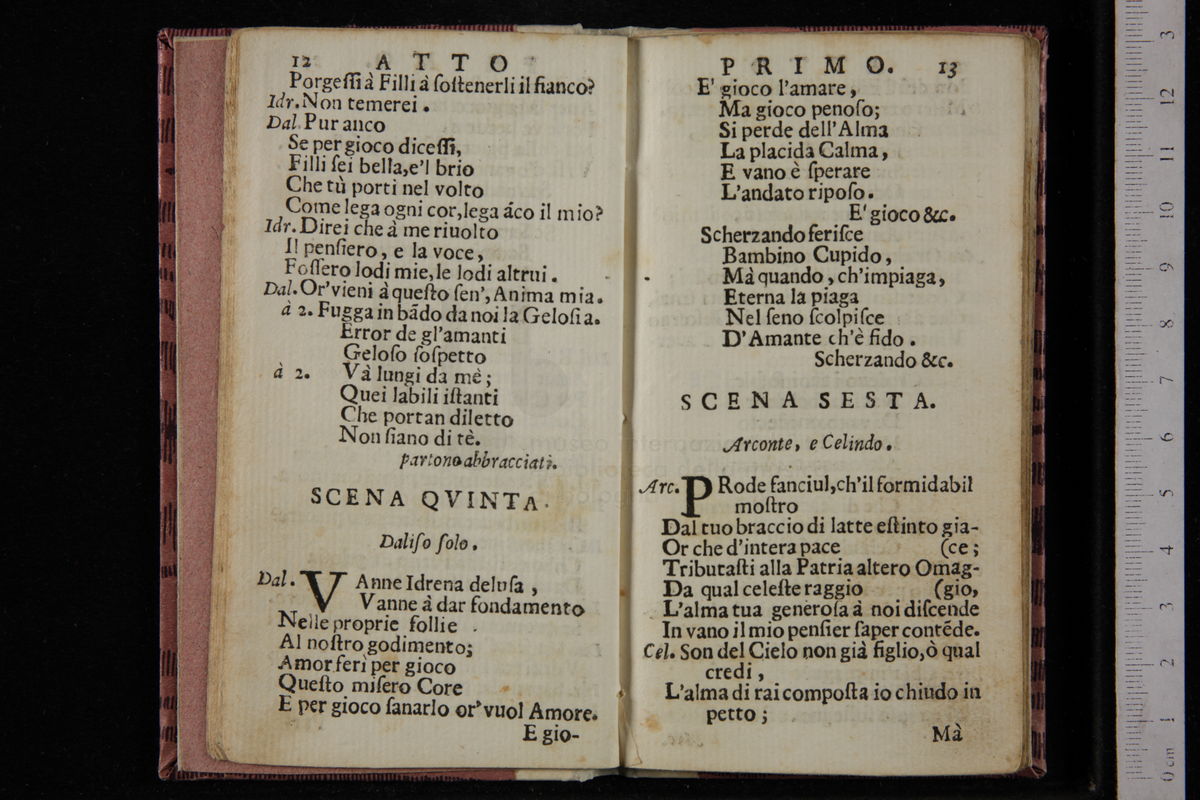 12 ATTO
Porgeſſi à Filli à ſoſtenerli il fianco?
Idr. Non temerei.
Dal. Pur anco
Se per gioco diceſſi,
Filli ſei bella, e'l brio
Che tù porti nel volto
Come lega ogni cor, lega áco il mio?
Idr. Direi che à me riuolto
Il penſiero, e la voce,
Foſſero lodi mie, le lodi altrui.
Dal. Or' vieni à queſto ſen', Anima mia.
à 2. Fugga in bãdo da noi la Geloſia.
Error de gl'amanti
Geloſo ſoſpetto
à 2. Và lungi da mè;
Quei labili iſtanti
Che portan diletto
Non ſiano di tè.
partono abbracciati.
SCENA QVINTA.
Daliſo ſolo.
Dal. VAnne Idrena deluſa,
Vanne à dar fondamento
Nelle proprie follie
Al noſtro godimento;
Amor ferì per gioco
Queſto miſero Core
E per gioco ſanarlo or' vuol Amore.
E gio-
PRIMO. 13
E' gioco l'amare,
Ma gioco penoſo;
Si perde dell'Alma
La placida Calma,
E vano è ſperare
L'andato ripoſo.
E' gioco &c.
Scherzando feriſce
Bambino Cupido,
Mà quando, ch'impiaga,
Eterna la piaga
Nel ſeno ſcolpiſce
D'Amante ch'è fido.
Scherzando &c.
SCENA SESTA.
Arconte, e Celindo.
Arc. PRode fanciul, ch'il formidabil
moſtro
Dal tuo braccio di latte eſtinto gia-
Or che d'intera pace (ce;
Tributaſti alla Patria altero Omag-
Da qual celeſte raggio (gio,
L'alma tua generoſa à noi diſcende
In vano il mio penſier ſaper contẽde.
Cel. Son del Cielo non già figlio, ò qual
credi,
L'alma di rai compoſta io chiudo in
petto;
Mà
0 cm 1 2 3 4 5 6 7 8 9 10 11 12 13